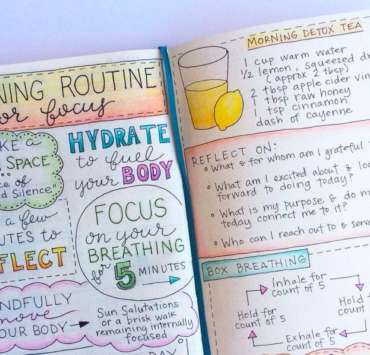 NING ROUTINE
for focus
KE A
SPACE
ce of
d Science"
a few
UTES to
FLECT
HYDRATE
to fuel
your BODY
FOCUS
on your
BREATHING
for 5 MINUTES
NDFULLY
move
OUR BODY
Sun Salutations
or a brisk walk
remaining internally
focused
DAY
MORNING DETOX TEA
1 cup warm water
1/2 lemon, squeezed
(approx 2 tbsp)
2 tbsp apple cider vin
1 tbsp raw honey
1 tsp cinnamon
dash of cayenne
REFLECT ON:
• What & for whom am I grateful
• What am I excited about & lo
forward to doing today?
• What is my purpose, & do m
today connect me to it?
• Who can I reach out to & serv
BOX BREATHING
Inhale for
count of 5
Hold
count
Exhale for
count of 5
Hold for
count of 5